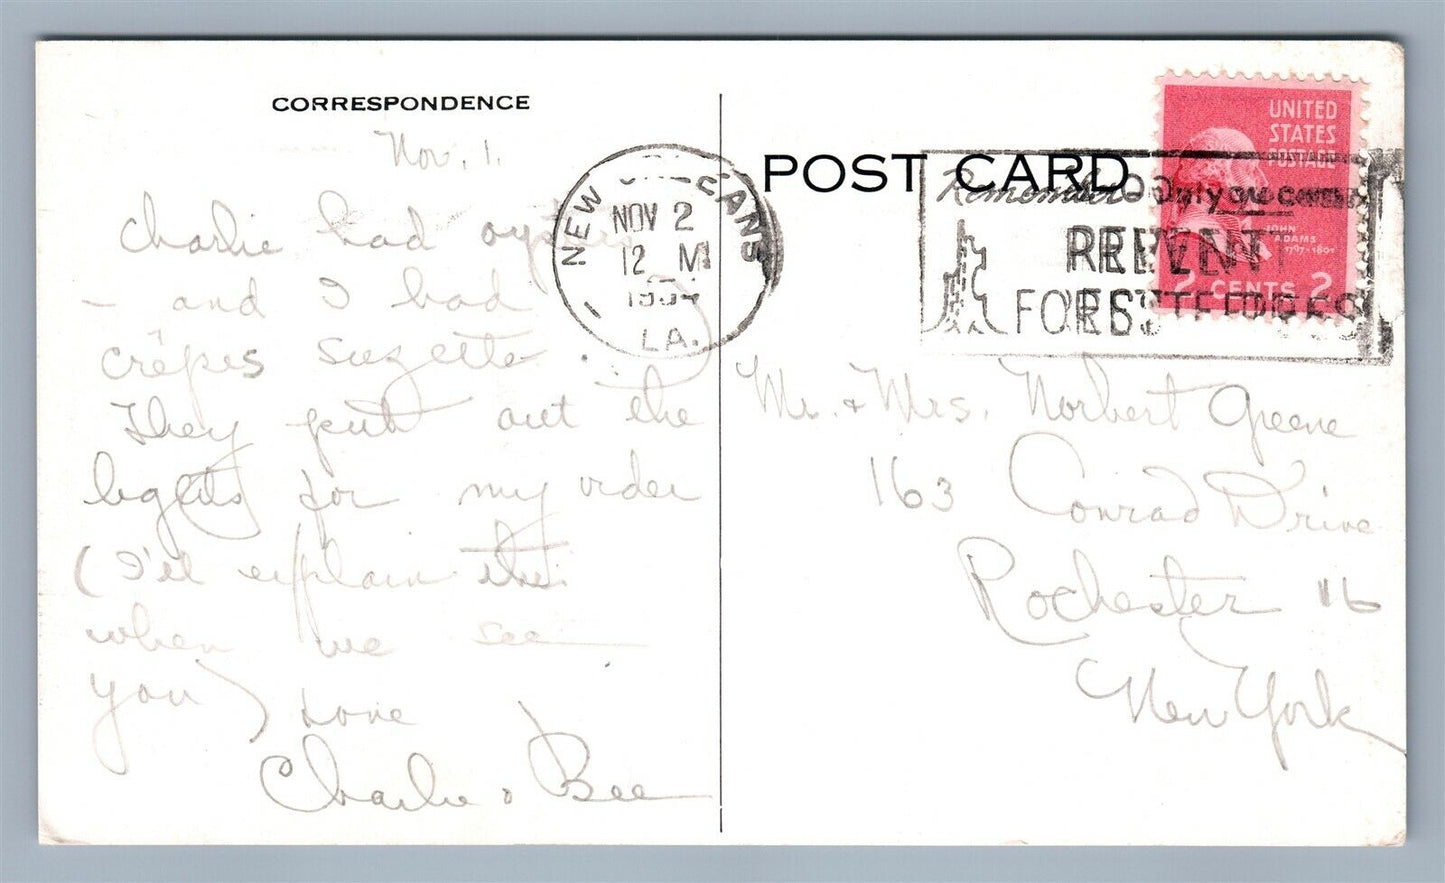 CORRESPONDENCE
Nov. 1.
Charlie had
- and I had
crêpes suzette.
They put out the
lights for my order
(I'll explain this
when we see
you) Love
Charlie & Bee
NEW
NOV 2
12 M
LA.
POST CARD
UNITED
STATES
JOHN
ADAMS
1797-1801
2 CENTS 2
Remember Only you can
PREVENT
FOREST FIRES
Mr. & Mrs. Norbert Greene
163 Conrad Drive
Rochester 16
New York